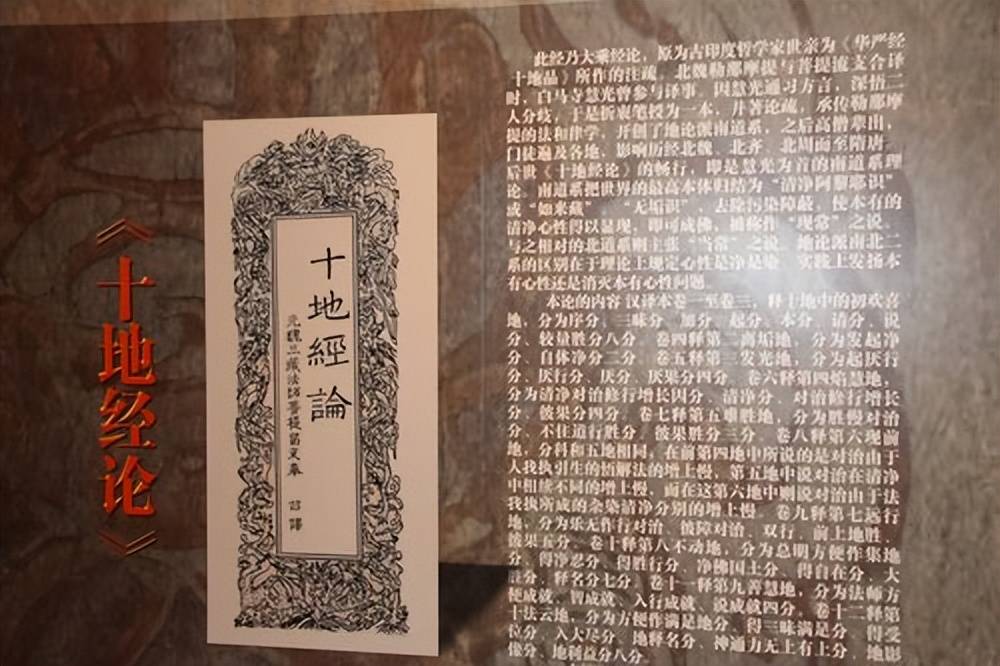 《十地经论》
十地經論
元魏三藏法師菩提留支奉 詔譯
此经乃大乘经论，原为古印度哲学家世亲为《华严经
十地品》所作的注疏。北魏勒那摩提与菩提流支合译
时，白马寺慧光曾参与译事。因慧光通习方言，深悟二
人分歧，于是折衷笔授为一本，并著论疏，承传勒那摩
提的法和律学，开创了地论派南道系，之后高僧辈出，
门徒遍及各地，影响历经北魏、北齐、北周而至隋唐。
后世《十地经论》的畅行，即是慧光为首的南道系理
论。南道系把世界的最高本体归结为“清净阿黎耶识”
或“如来藏”、“无垢识”，去除污染障蔽，使本有的
清净心性得以显现，即可成佛，被称作“现常”之说。
与之相对的北道系则主张“当常”之说。地论派南北二
系的区别在于理论上规定心性是净是染，实践上发扬本
有心性还是消灭本有心性问题。
本论的内容 汉译本卷一至卷三，释十地中的初欢喜
地，分为序分、三昧分、加分、起分、本分、请分、说
分、较量胜分八分。卷四释第二离垢地，分为发起净
分、自体净分二分。卷五释第三发光地，分为起厌行
分、厌行分、厌分、厌果分四分。卷六释第四焰慧地，
分为清净对治修行增长因分、清净分、对治修行增长
分、彼果分四分。卷七释第五难胜地，分为胜慢对治
分、不住道行胜分、彼果胜分三分。卷八释第六现前
地，分科和五地相同，在前第四地中所说的是对治由于
人我执引生的悟解法的增上慢，第五地中说对治在清净
中相续不同的增上慢，而在这第六地中则说对治由于法
我执所成的杂染清净分别的增上慢。卷九释第七远行
地，分为乐无作行对治、彼障对治、双行、前上地胜、
彼果五分。卷十释第八不动地，分为总明方便作集地
分、得净忍分、得胜行分、净佛国土分、得自在分、大
胜分、释名分七分。卷十一释第九善慧地，分为法师方
便成就、智成就、入行成就、说成就四分。卷十二释第
十法云地，分为方便作满足地分、得三昧满足分、得受
位分、入大尽分、地释名分、神通力无上有上分、地影
像分、地利益分八分。